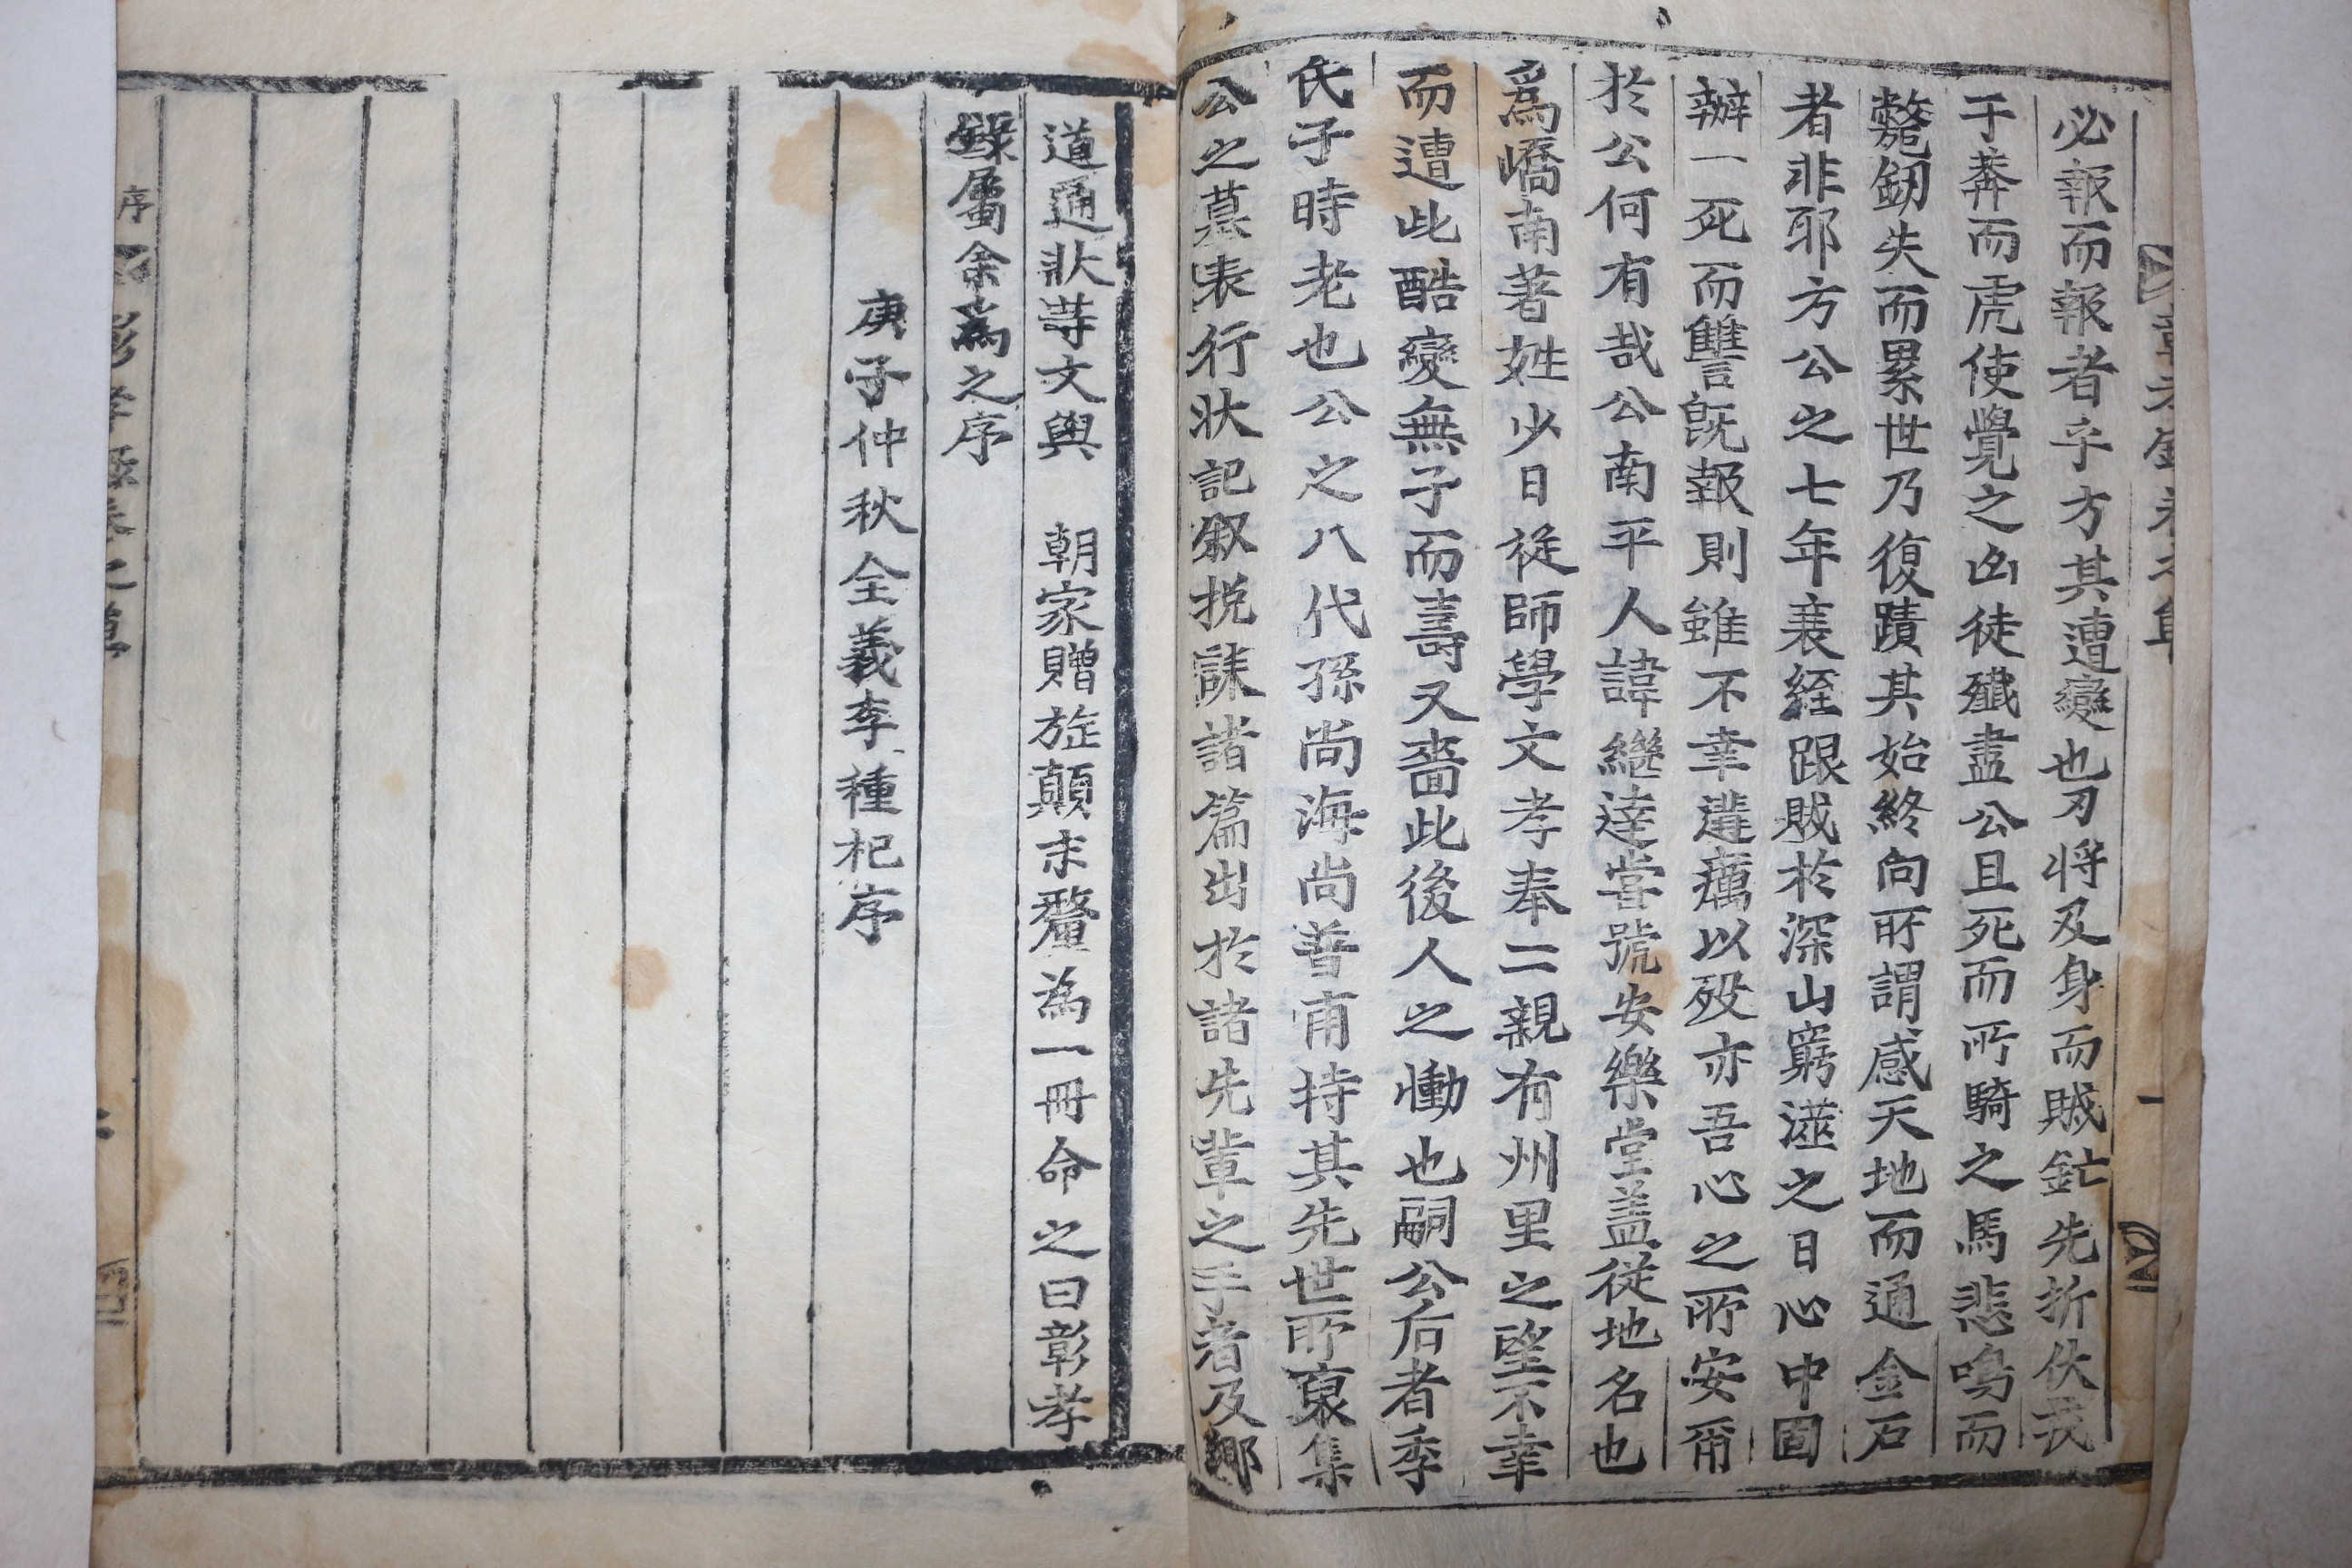 必報而報者乎方其遭變也刃將及身而賊鋩先折伏戎
于莽而虎使覺之凶徒殲盡公且死而所騎之馬悲鳴而
斃劒失而累世乃復蹟其始終向所謂感天地而通金石
者非耶方公之七年衰絰跟賊於深山窮澨之日心中固
辦一死而讐旣報則雖不幸遘癘以歿亦吾心之所安爾
於公何有哉公南平人諱繼達嘗號安樂堂盖從地名也
爲嶠南著姓少日從師學文孝奉二親有州里之望不幸
而遭此酷變無子而壽又嗇此後人之慟也嗣公后者季
氏子時老也公之八代孫尚海尚普甫持其先世所裒集
公之墓表行狀記叙挽誄諸篇出於諸先輩之手者及鄉
道通狀䓁文與 朝家贈旌顛末釐為一冊命之曰彰孝
錄屬余爲之序
庚子仲秋全義李種杞序
序
彰孝錄卷之